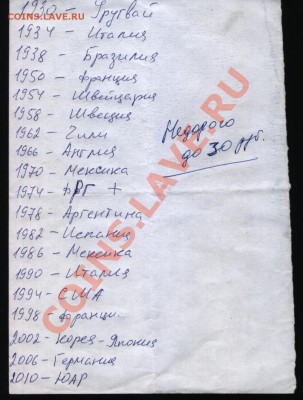 COINS.LAVE.RU
1930 - Уругвай
1934 - Италия
1938 - Бразилия
1950 - Франция
1954 - Швейцария
1958 - Швеция
1962 - Чили
1966 - Англия
1970 - Мексика
1974 - ФРГ +
1978 - Аргентина
1982 - Испания
1986 - Мексика
1990 - Италия
1994 - США
1998 - Франци.
2002 - Корея-Япония
2006 - Германия
2010 - ЮАР
Недорого
до 30 руб.
COINS.LAVE.RU